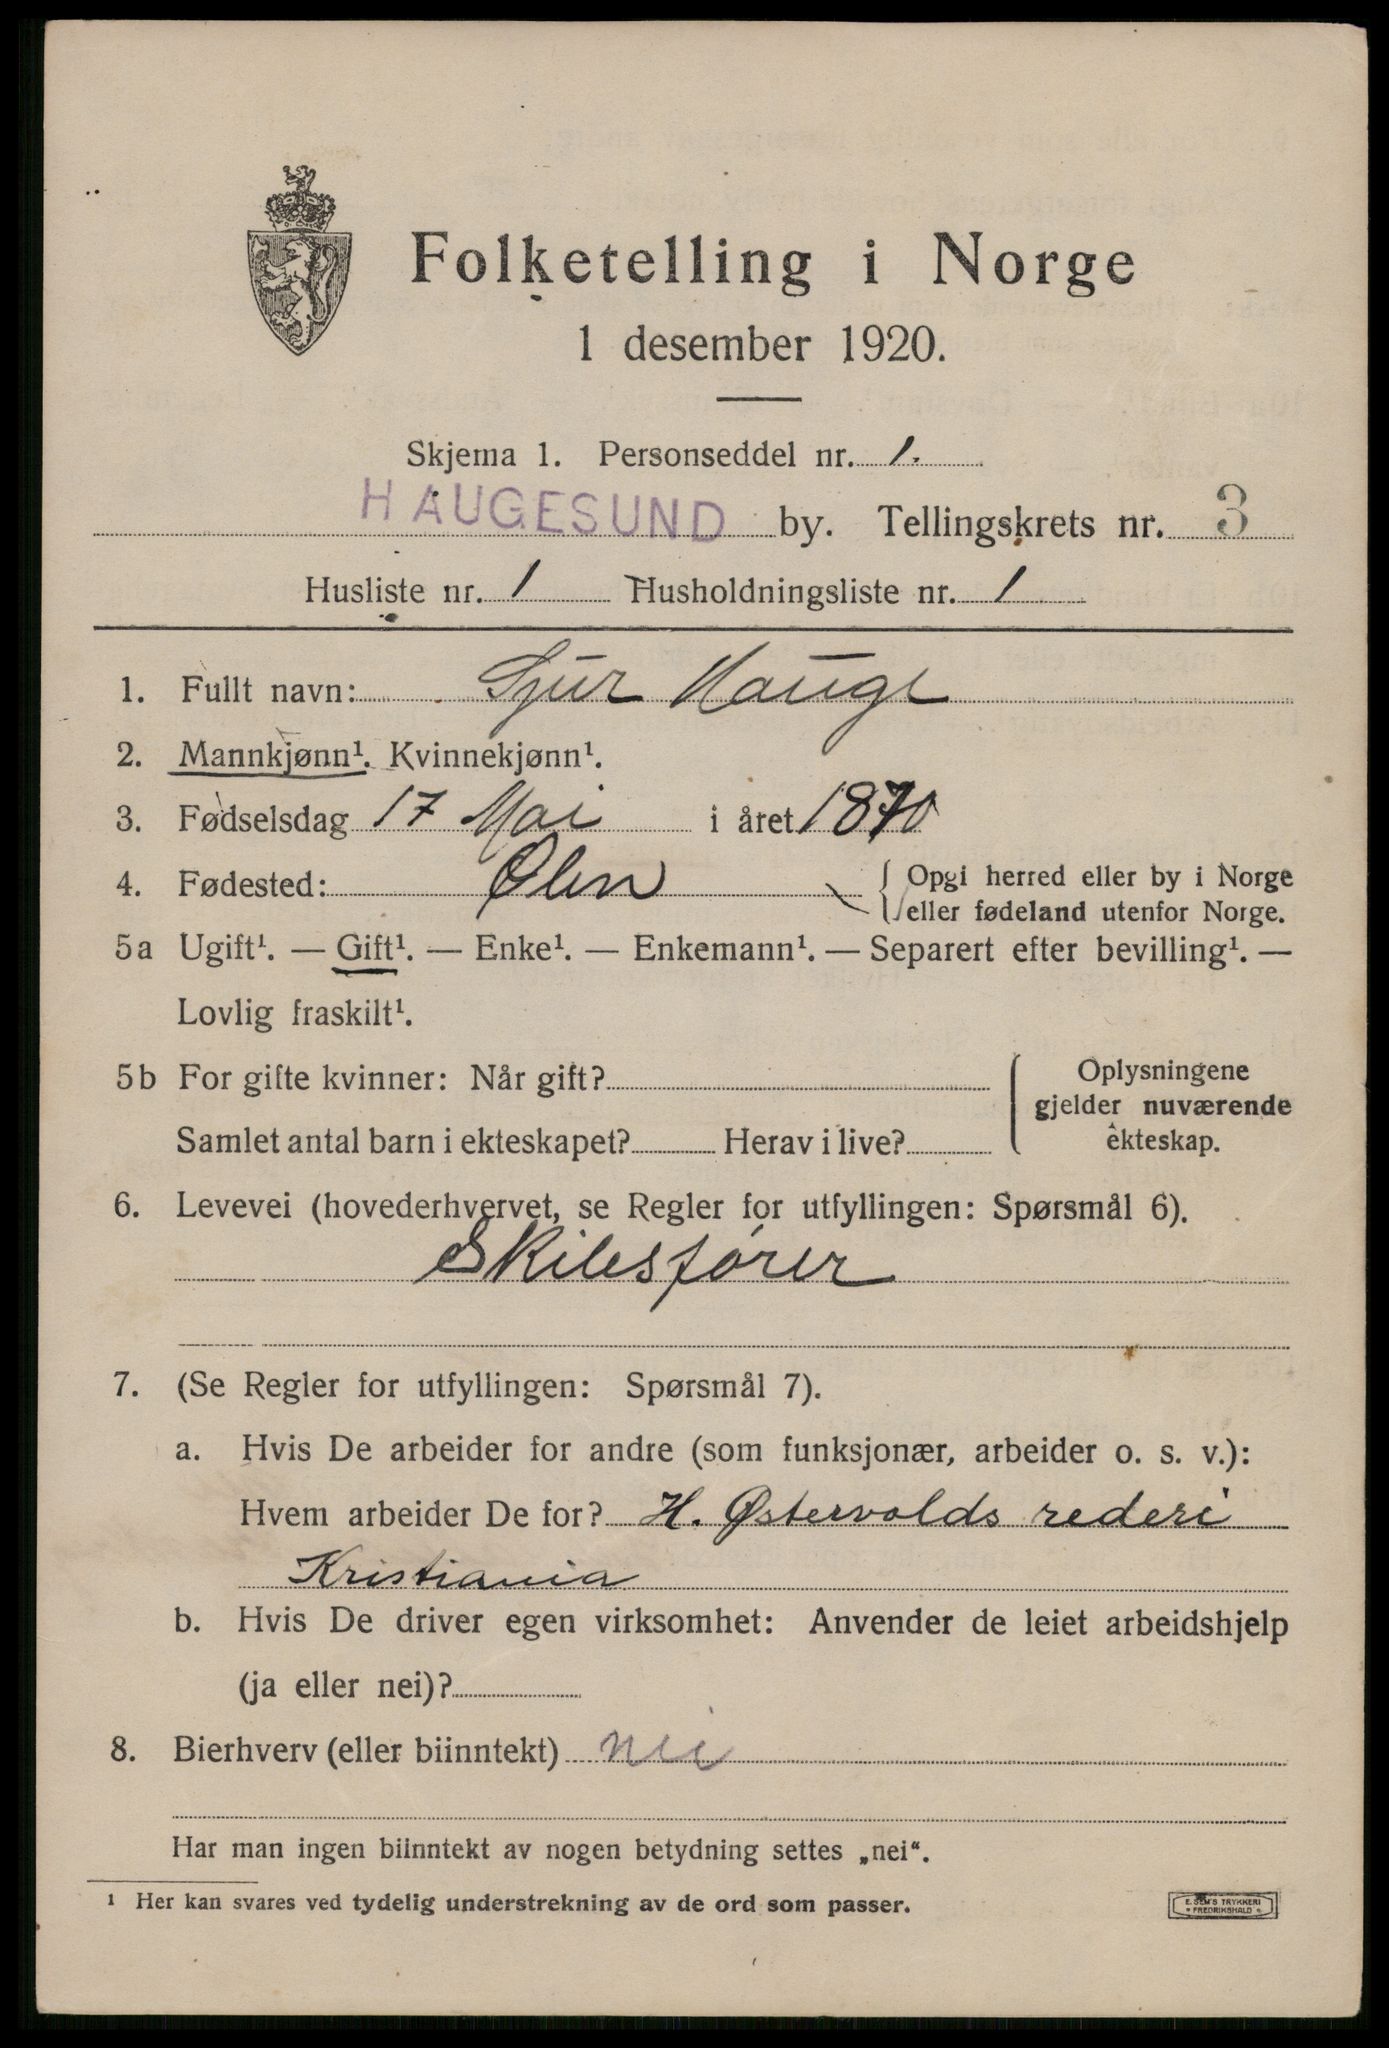 Folketelling i Norge
1 desember 1920.
Skjema 1. Personseddel nr. 1.
HAUGESUND by. Tellingskrets nr. 3
Husliste nr. 1 Husholdningsliste nr. 1
1. Fullt navn: Sjur Hauge
2. Mannkjønn¹. Kvinnekjønn¹.
3. Fødselsdag 17 Mai i året 1870
4. Fødested: Ølen { Opgi herred eller by i Norge
eller fødeland utenfor Norge.
5a Ugift¹. — Gift¹. — Enke¹. — Enkemann¹. — Separert efter bevilling¹. —
Lovlig fraskilt¹.
5b For gifte kvinner: Når gift? { Oplysningene
gjelder nuværende
Samlet antal barn i ekteskapet? Herav i live? ekteskap.
6. Levevei (hovederhvervet, se Regler for utfyllingen: Spørsmål 6).
Skibsfører
7. (Se Regler for utfyllingen: Spørsmål 7).
a. Hvis De arbeider for andre (som funksjonær, arbeider o. s. v.):
Hvem arbeider De for? H. Østervolds rederi
Kristiania
b. Hvis De driver egen virksomhet: Anvender de leiet arbeidshjelp
(ja eller nei)?
8. Bierhverv (eller biinntekt) nei
Har man ingen biinntekt av nogen betydning settes „nei“.
¹ Her kan svares ved tydelig understrekning av de ord som passer.
E. SEM'S TRYKKERI
FREDRIKSHALD